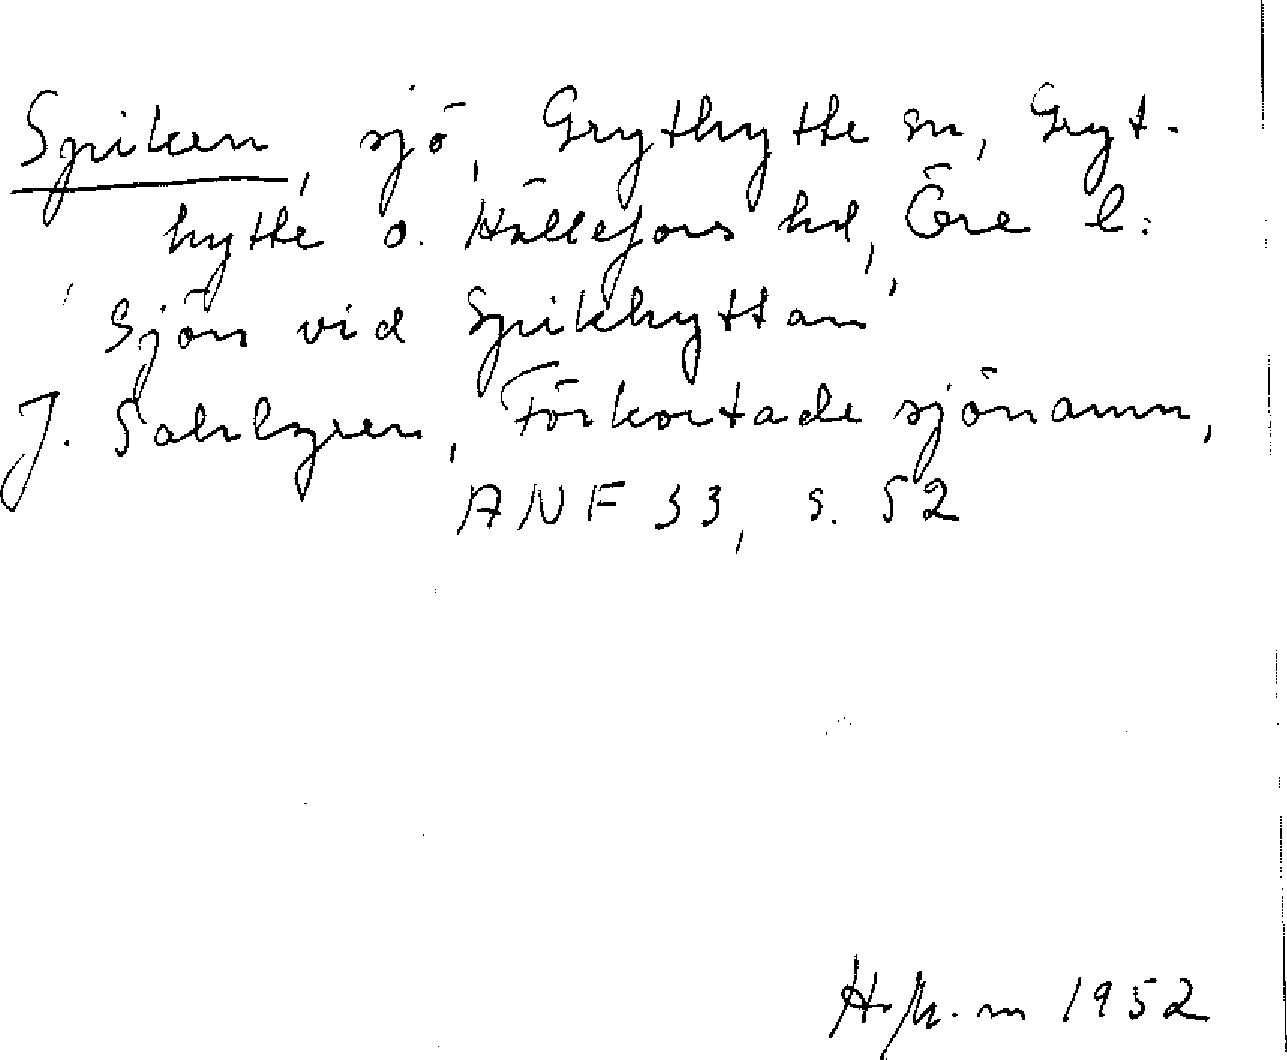 Spiken, sjö, Grythytte sn, Gryt-
hytte o. Hällefors hd, Öre l:
'Sjön vid Spikhyttan'
J. Sahlgren, Förkortade sjönamn,
ANF 33, s. 52
1952